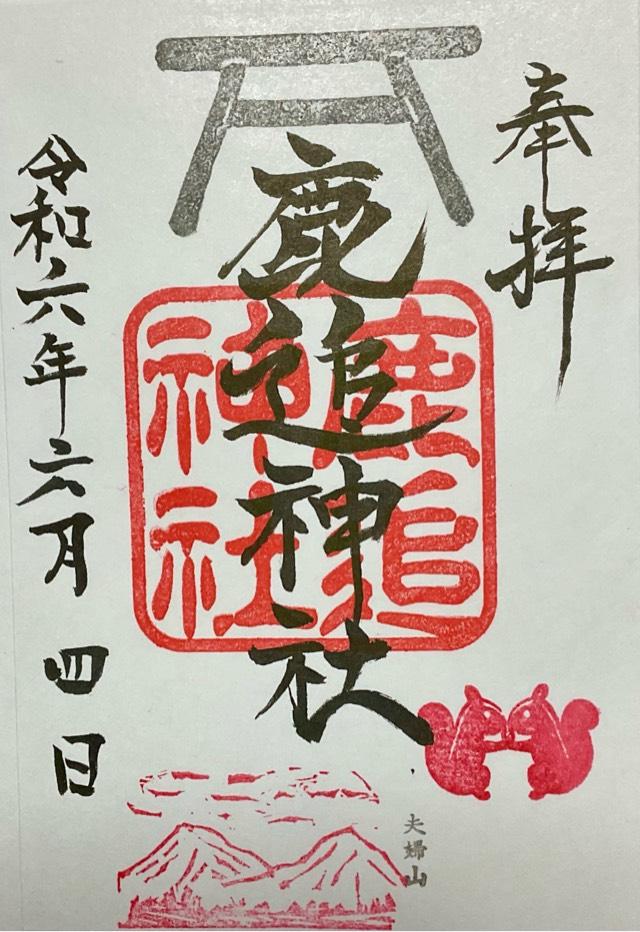 奉拝
鹿追神社
鹿追
神社
令和六年六月四日
夫婦山